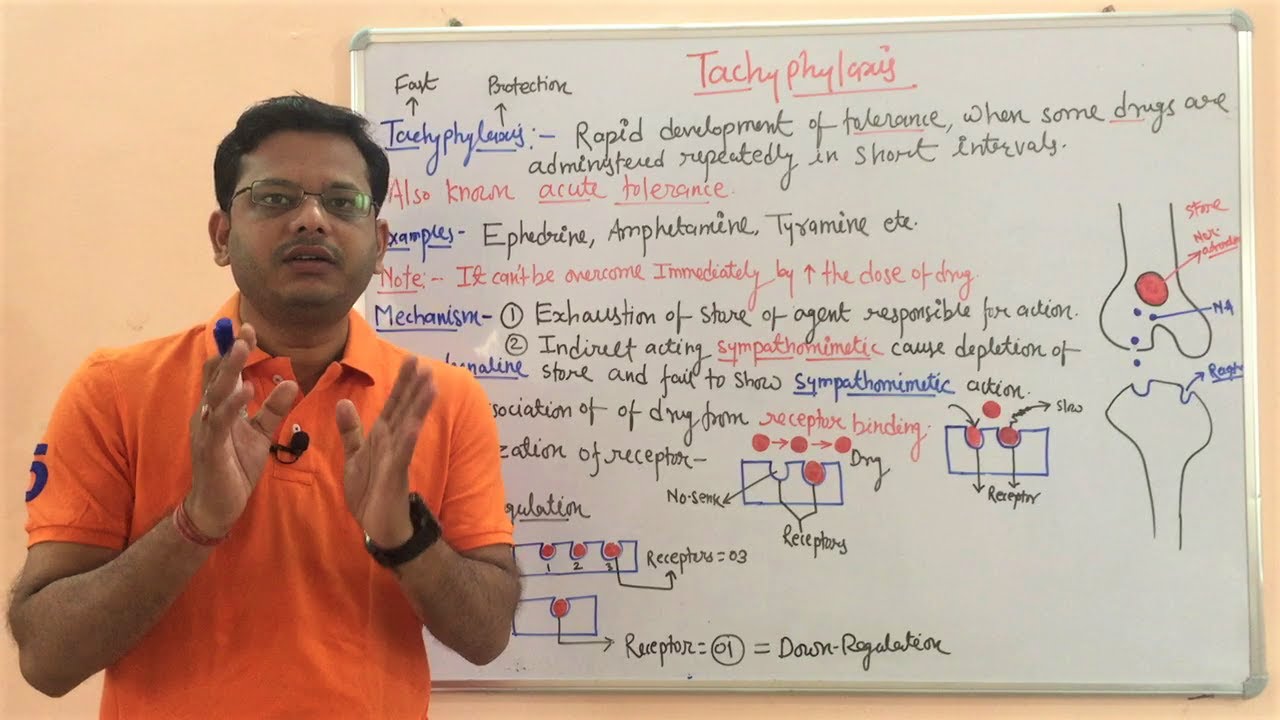 Tachyphylaxis
Fast Protection
Tachyphylaxis:- Rapid development of tolerance, when some drugs are
administered repeatedly in short intervals.
Also known acute tolerance.
Examples- Ephedrine, Amphetamine, Tyramine etc.
Note:- It can't be overcome Immediately by ↑ the dose of drug.
Mechanism- ① Exhaustion of store of agent responsible for action.
② Indirect acting sympathomimetic cause depletion of
enaline store and fail to show sympathomimetic action.
sociation of of drug from receptor binding.
zation of receptor-
gulation
Store
Nor-
NA
Slow
Receptor
Drug
Receptors
1 2 3
Receptors=03
Receptor=01 = Down-Regulation
5